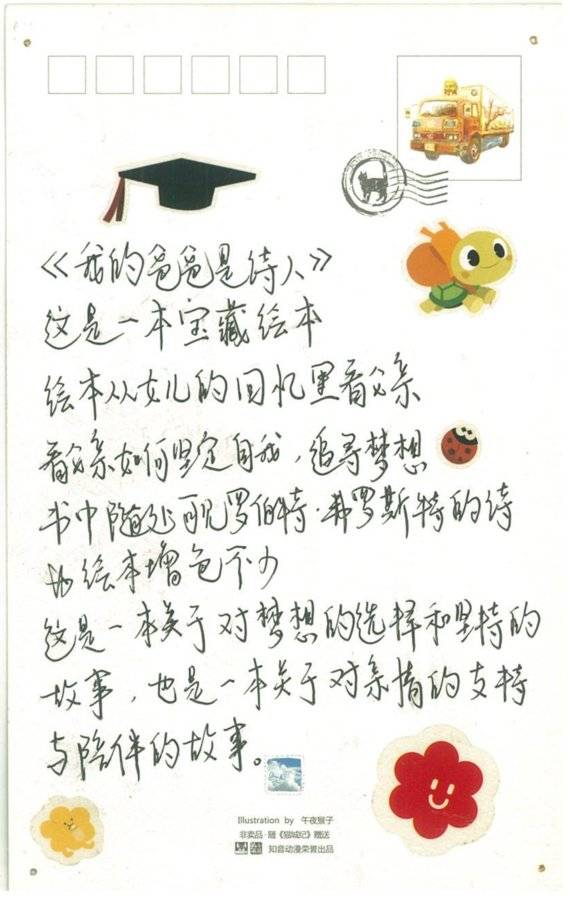 《我的爸爸是诗人》
这是一本宝藏绘本
绘本从女儿的回忆里看父亲
看父亲如何坚定自我，追寻梦想
书中随处可见罗伯特·弗罗斯特的诗
为绘本增色不少
这是一本关于对梦想的选择和坚持的
故事，也是一本关于对亲情的支持
与陪伴的故事。
Illustration by 午夜猴子
非卖品·随《猫城记》赠送
知音动漫荣誉出品